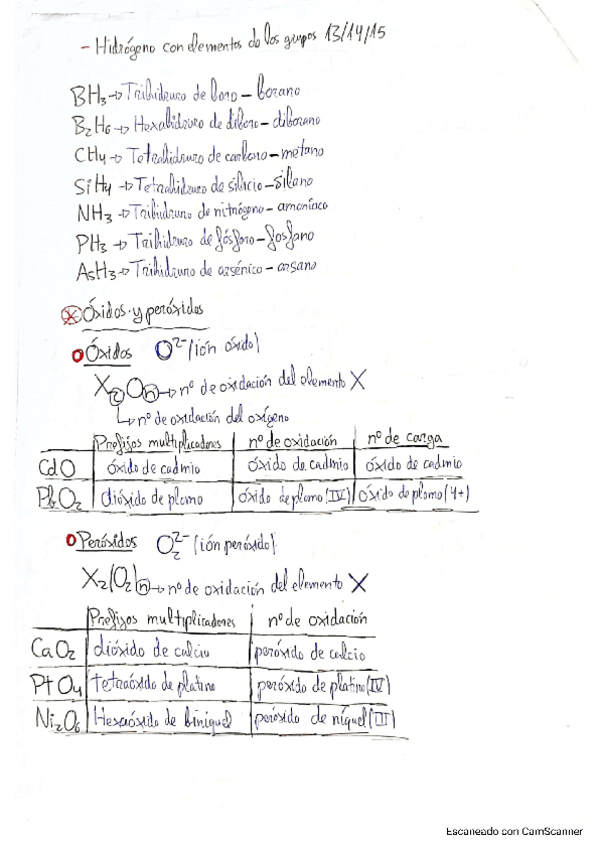 - Hidrógeno con elementos de los grupos 13/14/15
BH3 → Trihidruro de boro - borano
B2H6 → Hexahidruro de diboro - diborano
CH4 → Tetrahidruro de carbono - metano
SiH4 → Tetrahidruro de silicio - silano
NH3 → Trihidruro de nitrógeno - amoníaco
PH3 → Trihidruro de fósforo - fosfano
AsH3 → Trihidruro de arsénico - arsano
Óxidos y peróxidos
Óxidos O2- (ión óxido)
X2On → nº de oxidación del elemento X
↳ nº de oxidación del oxígeno
Prefijos multiplicadores nº de oxidación nº de carga
CdO óxido de cadmio óxido de cadmio óxido de cadmio
PbO2 dióxido de plomo óxido de plomo (IV) óxido de plomo (4+)
Peróxidos O2 2- (ión peróxido)
X2(O2)n → nº de oxidación del elemento X
Prefijos multiplicadores nº de oxidación
CaO2 dióxido de calcio peróxido de calcio
PtO4 tetraóxido de platino peróxido de platino (IV)
Ni2O6 Hexaóxido de biníquel peróxido de níquel (III)
Escaneado con CamScanner